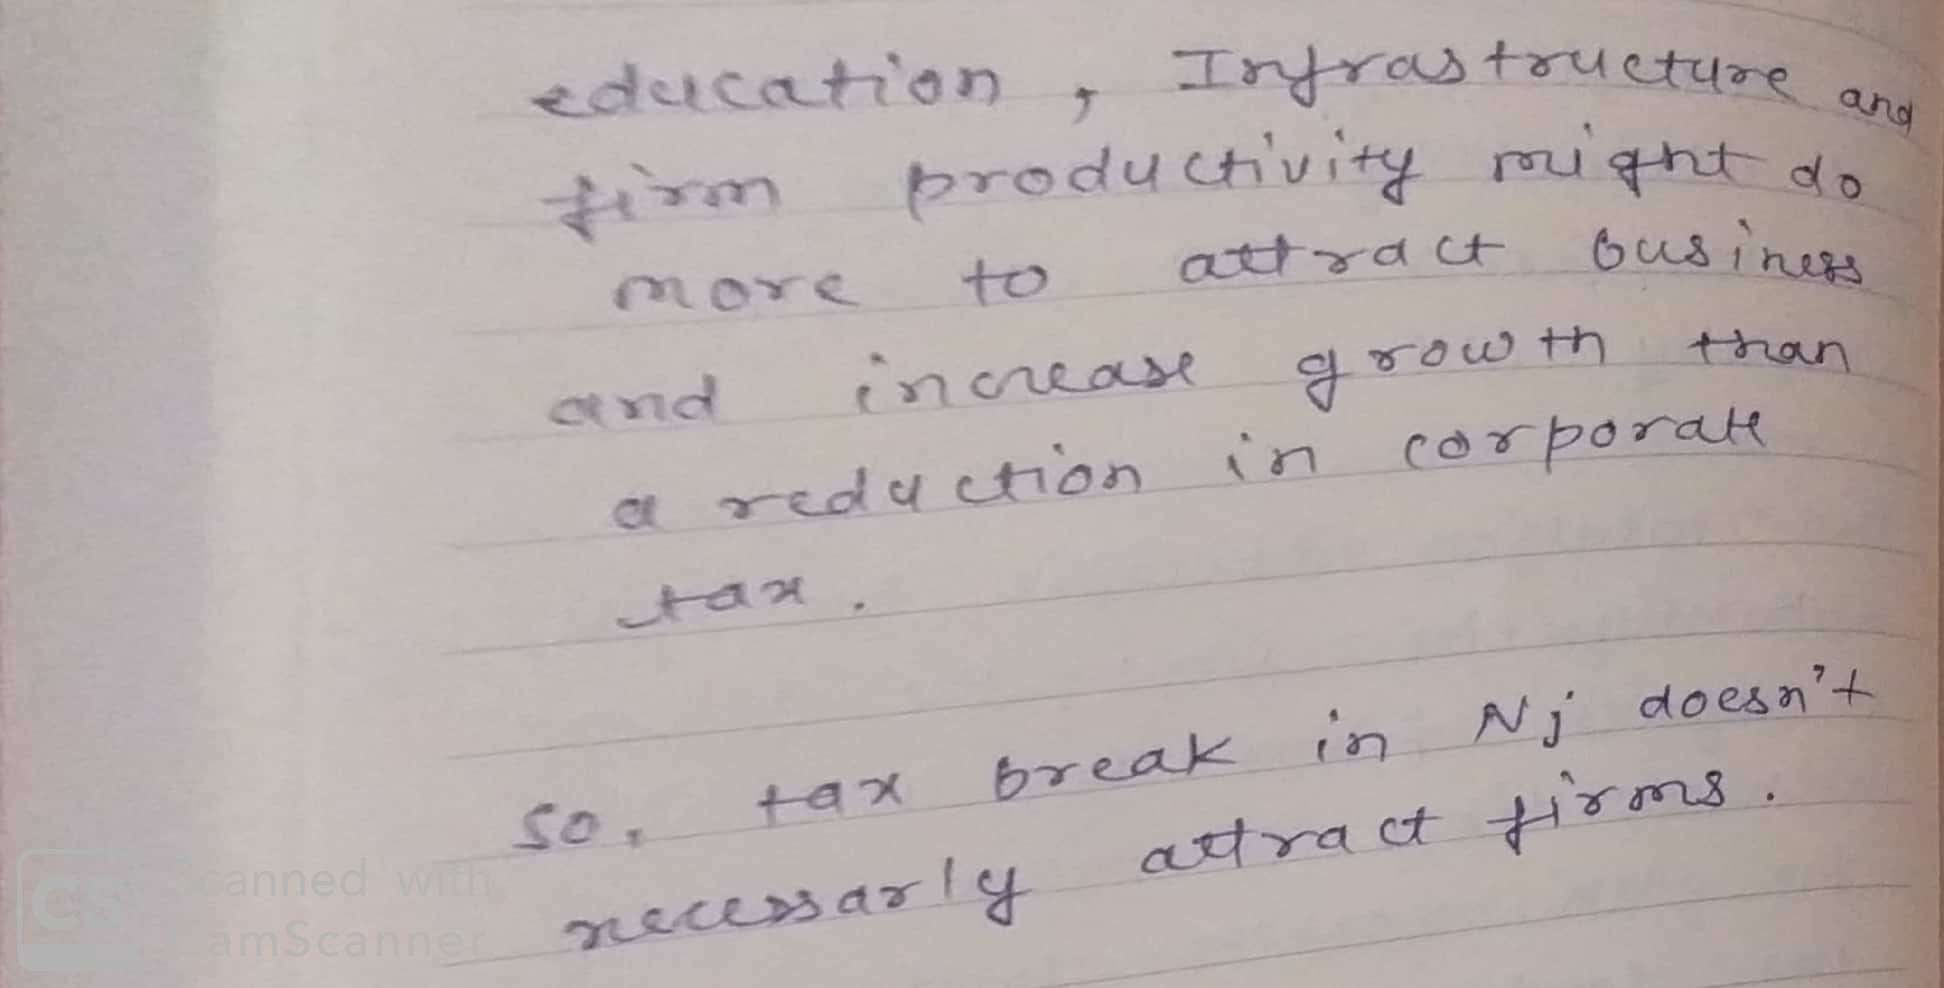 education, Infrastructure and
firm productivity might do
more to attract business
and increase growth than
a reduction in corporate
tax.
so, tax break in Nj doesn't
necessarly attract firms.
CS Scanned with
CamScanner